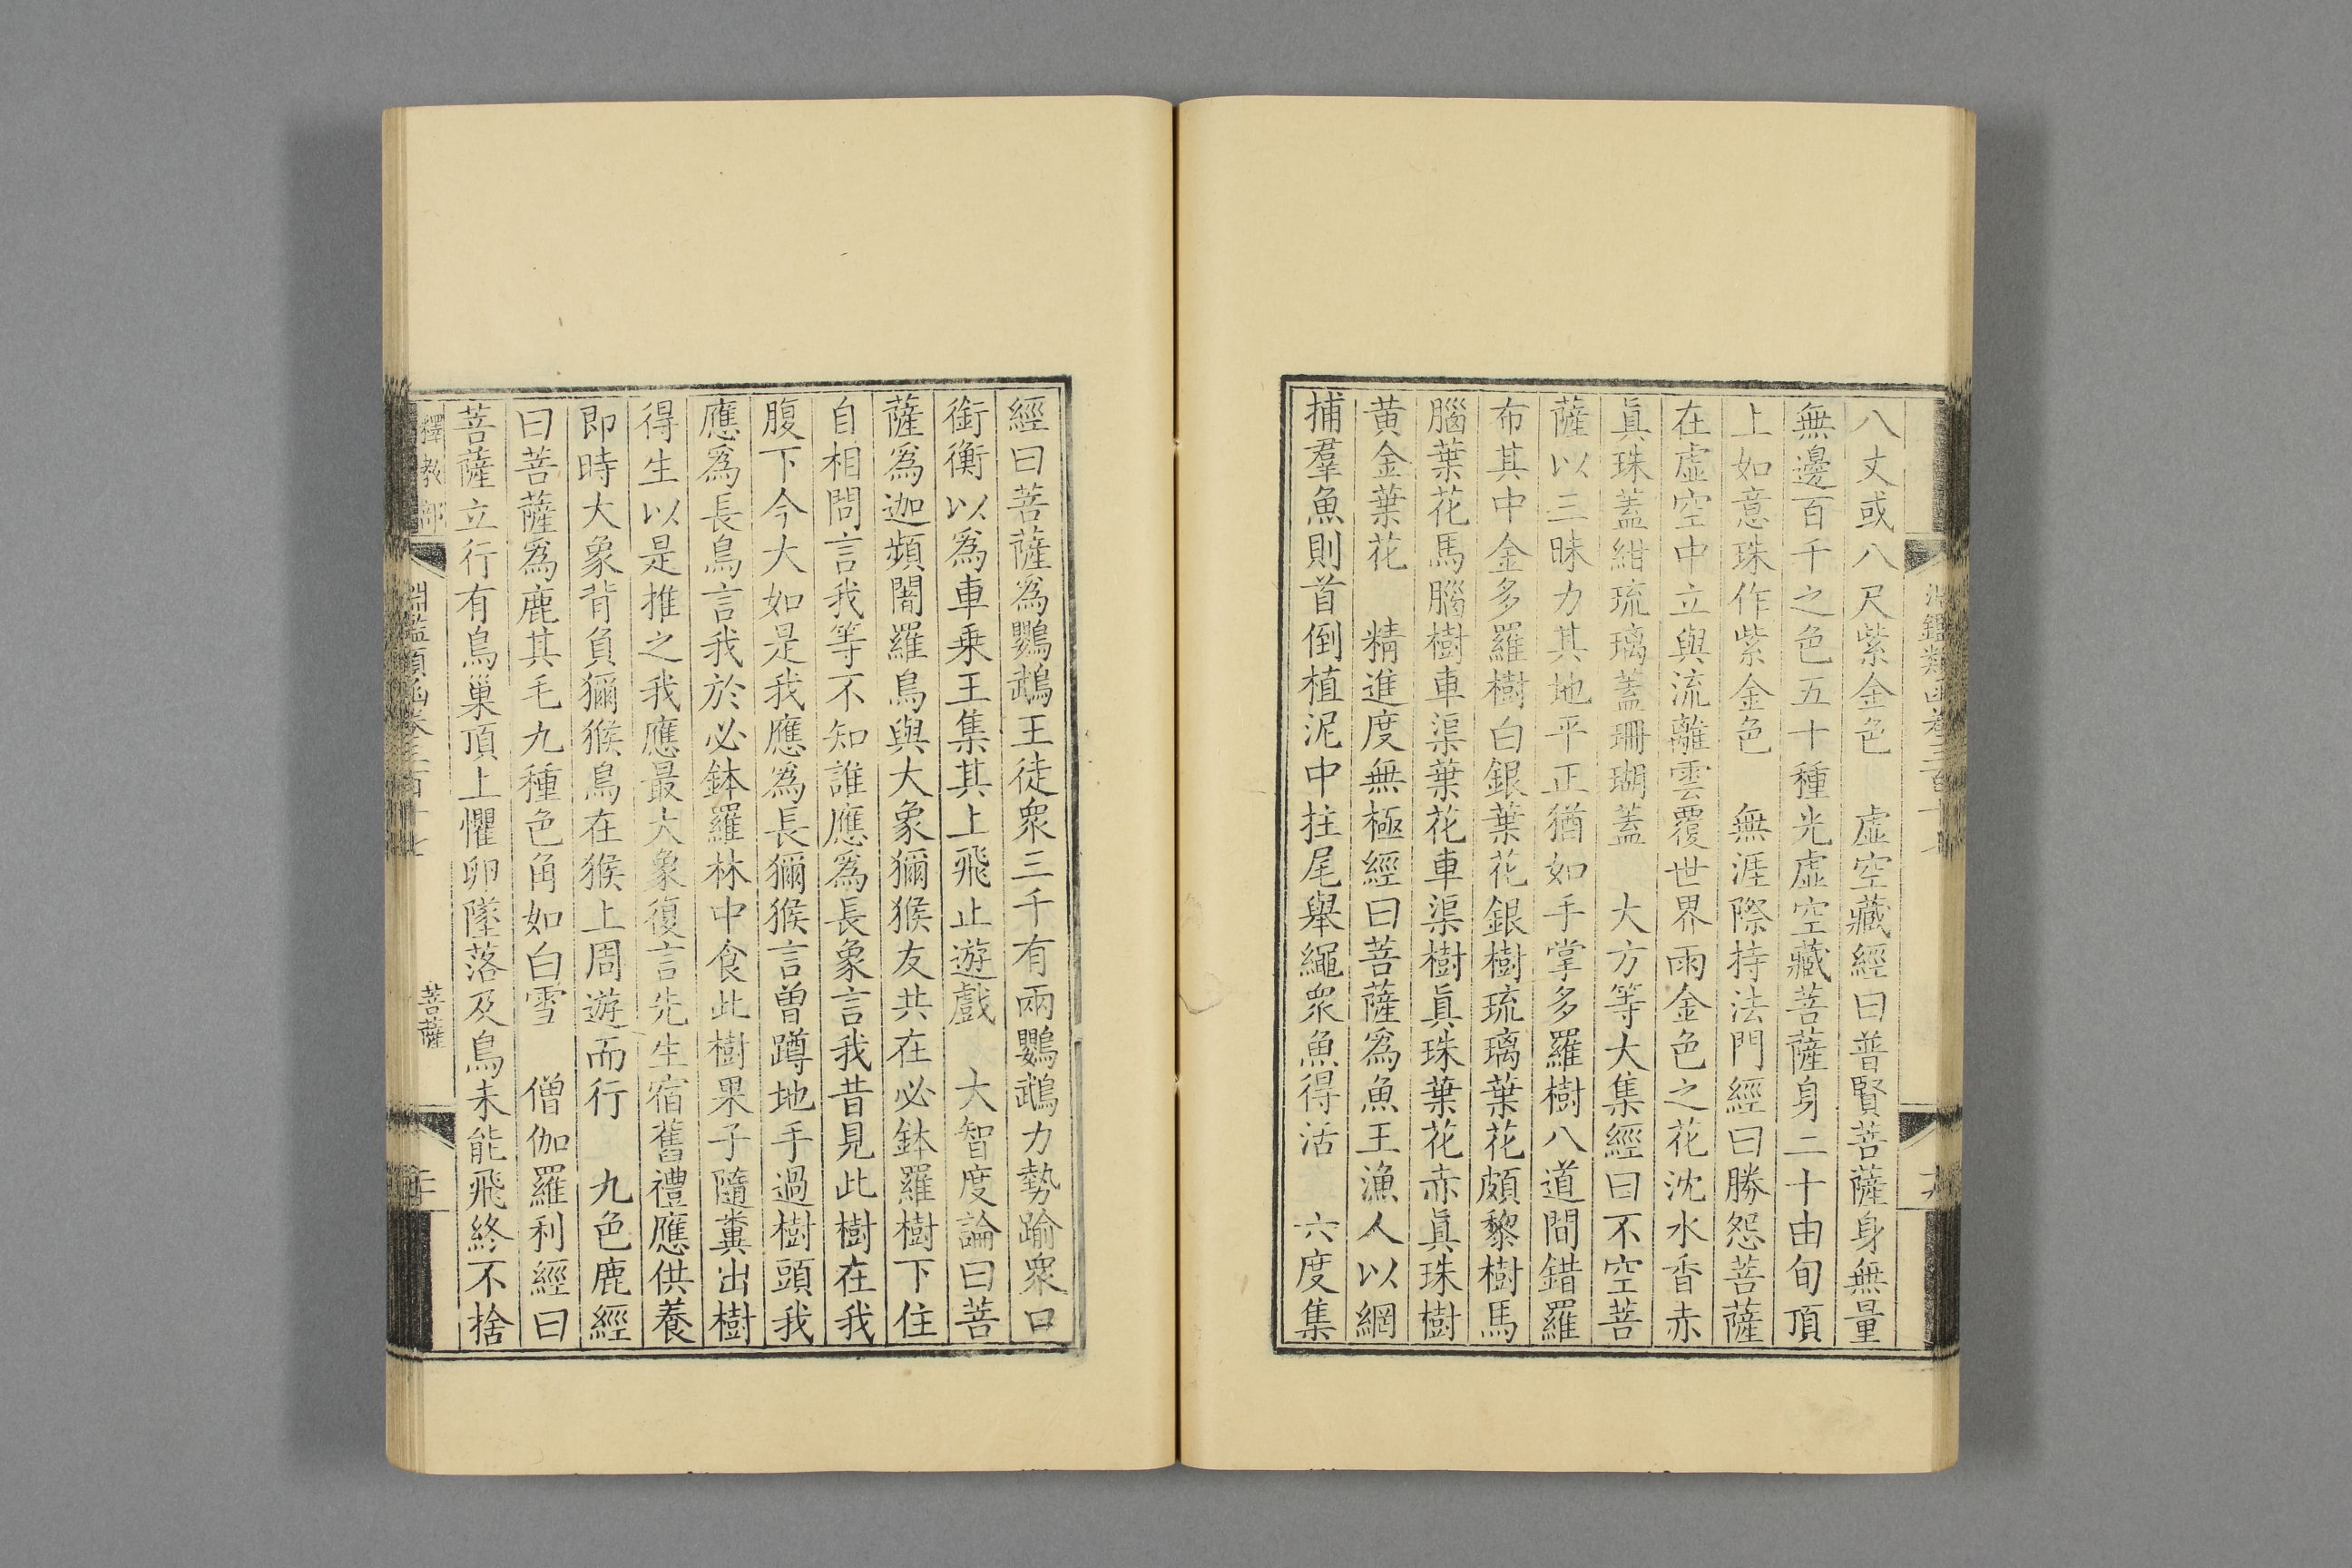 八丈或八尺紫金色　虛空藏經曰普賢菩薩身無量
無邊百千之色五十種光虛空藏菩薩身二十由旬頂
上如意珠作紫金色　無涯際持法門經曰勝怨菩薩
在虛空中立與流離雲覆世界雨金色之花沈水香赤
眞珠蓋紺琉璃蓋珊瑚蓋　大方等大集經曰不空菩
薩以三昧力其地平正猶如手掌多羅樹八道間錯羅
布其中金多羅樹白銀葉花銀樹琉璃葉花頗黎樹馬
腦葉花馬腦樹車渠葉花車渠樹眞珠葉花赤眞珠樹
黄金葉花　精進度無極經曰菩薩爲魚王漁人以網
捕羣魚則首倒植泥中拄尾舉繩衆魚得活　六度集
經曰菩薩爲鸚鵡王徒衆三千有兩鸚鵡力勢踰衆口
銜衡以爲車乗王集其上飛止遊戲　大智度論曰菩
薩爲迦頻闍羅鳥與大象獼猴友共在必鉢羅樹下住
自相問言我等不知誰應爲長象言我昔見此樹在我
腹下今大如是我應爲長獼猴言曾蹲地手過樹頭我
應爲長鳥言我於必鉢羅林中食此樹果子隨糞出樹
得生以是推之我應最大象復言先生宿舊禮應供養
即時大象背負獼猴鳥在猴上周遊而行　九色鹿經
曰菩薩爲鹿其毛九種色角如白雪　僧伽羅利經曰
菩薩立行有鳥巢頂上懼卵墜落及鳥未能飛終不捨
釋教部
淵鑑類函卷三百十七
菩薩